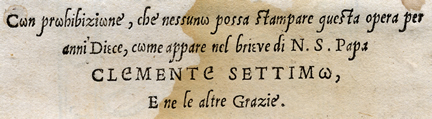 Cωn prωhibiziωne, che nessunω possa stampare questa opera per
anni Diece, cωme appare nel brieve di N. S. Papa
CLEMENTE SETTIMω,
E ne le altre Grazie.